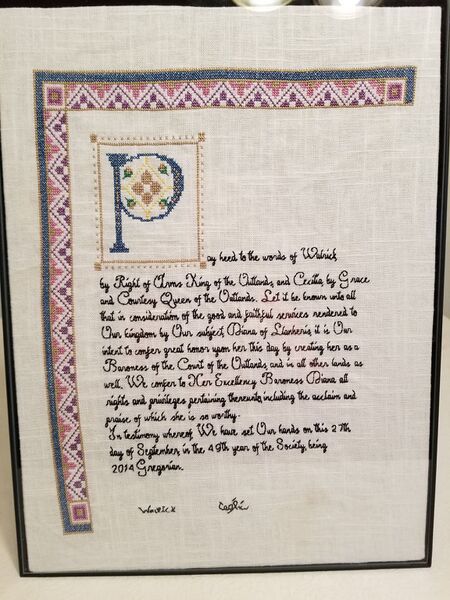 Pay heed to the words of Walrick,
by Right of Arms King of the Outlands, and Cecilia, by Grace
and Courtesy Queen of the Outlands. Let it be known unto all
that in consideration of the good and faithful services rendered to
Our kingdom by Our subject, Diana of Llanheris, it is Our
intent to confer great honor upon her this day by creating her as a
Baroness of the Court of the Outlands, and in all other lands as
well. We confer to Her Excellency Baroness Diana all
rights and privileges pertaining thereunto, including the acclaim and
praise of which she is so worthy.
In testimony whereof, We have set Our hands on this 27th
day of September, in the 49th year of the Society, being
2014 Gregorian.